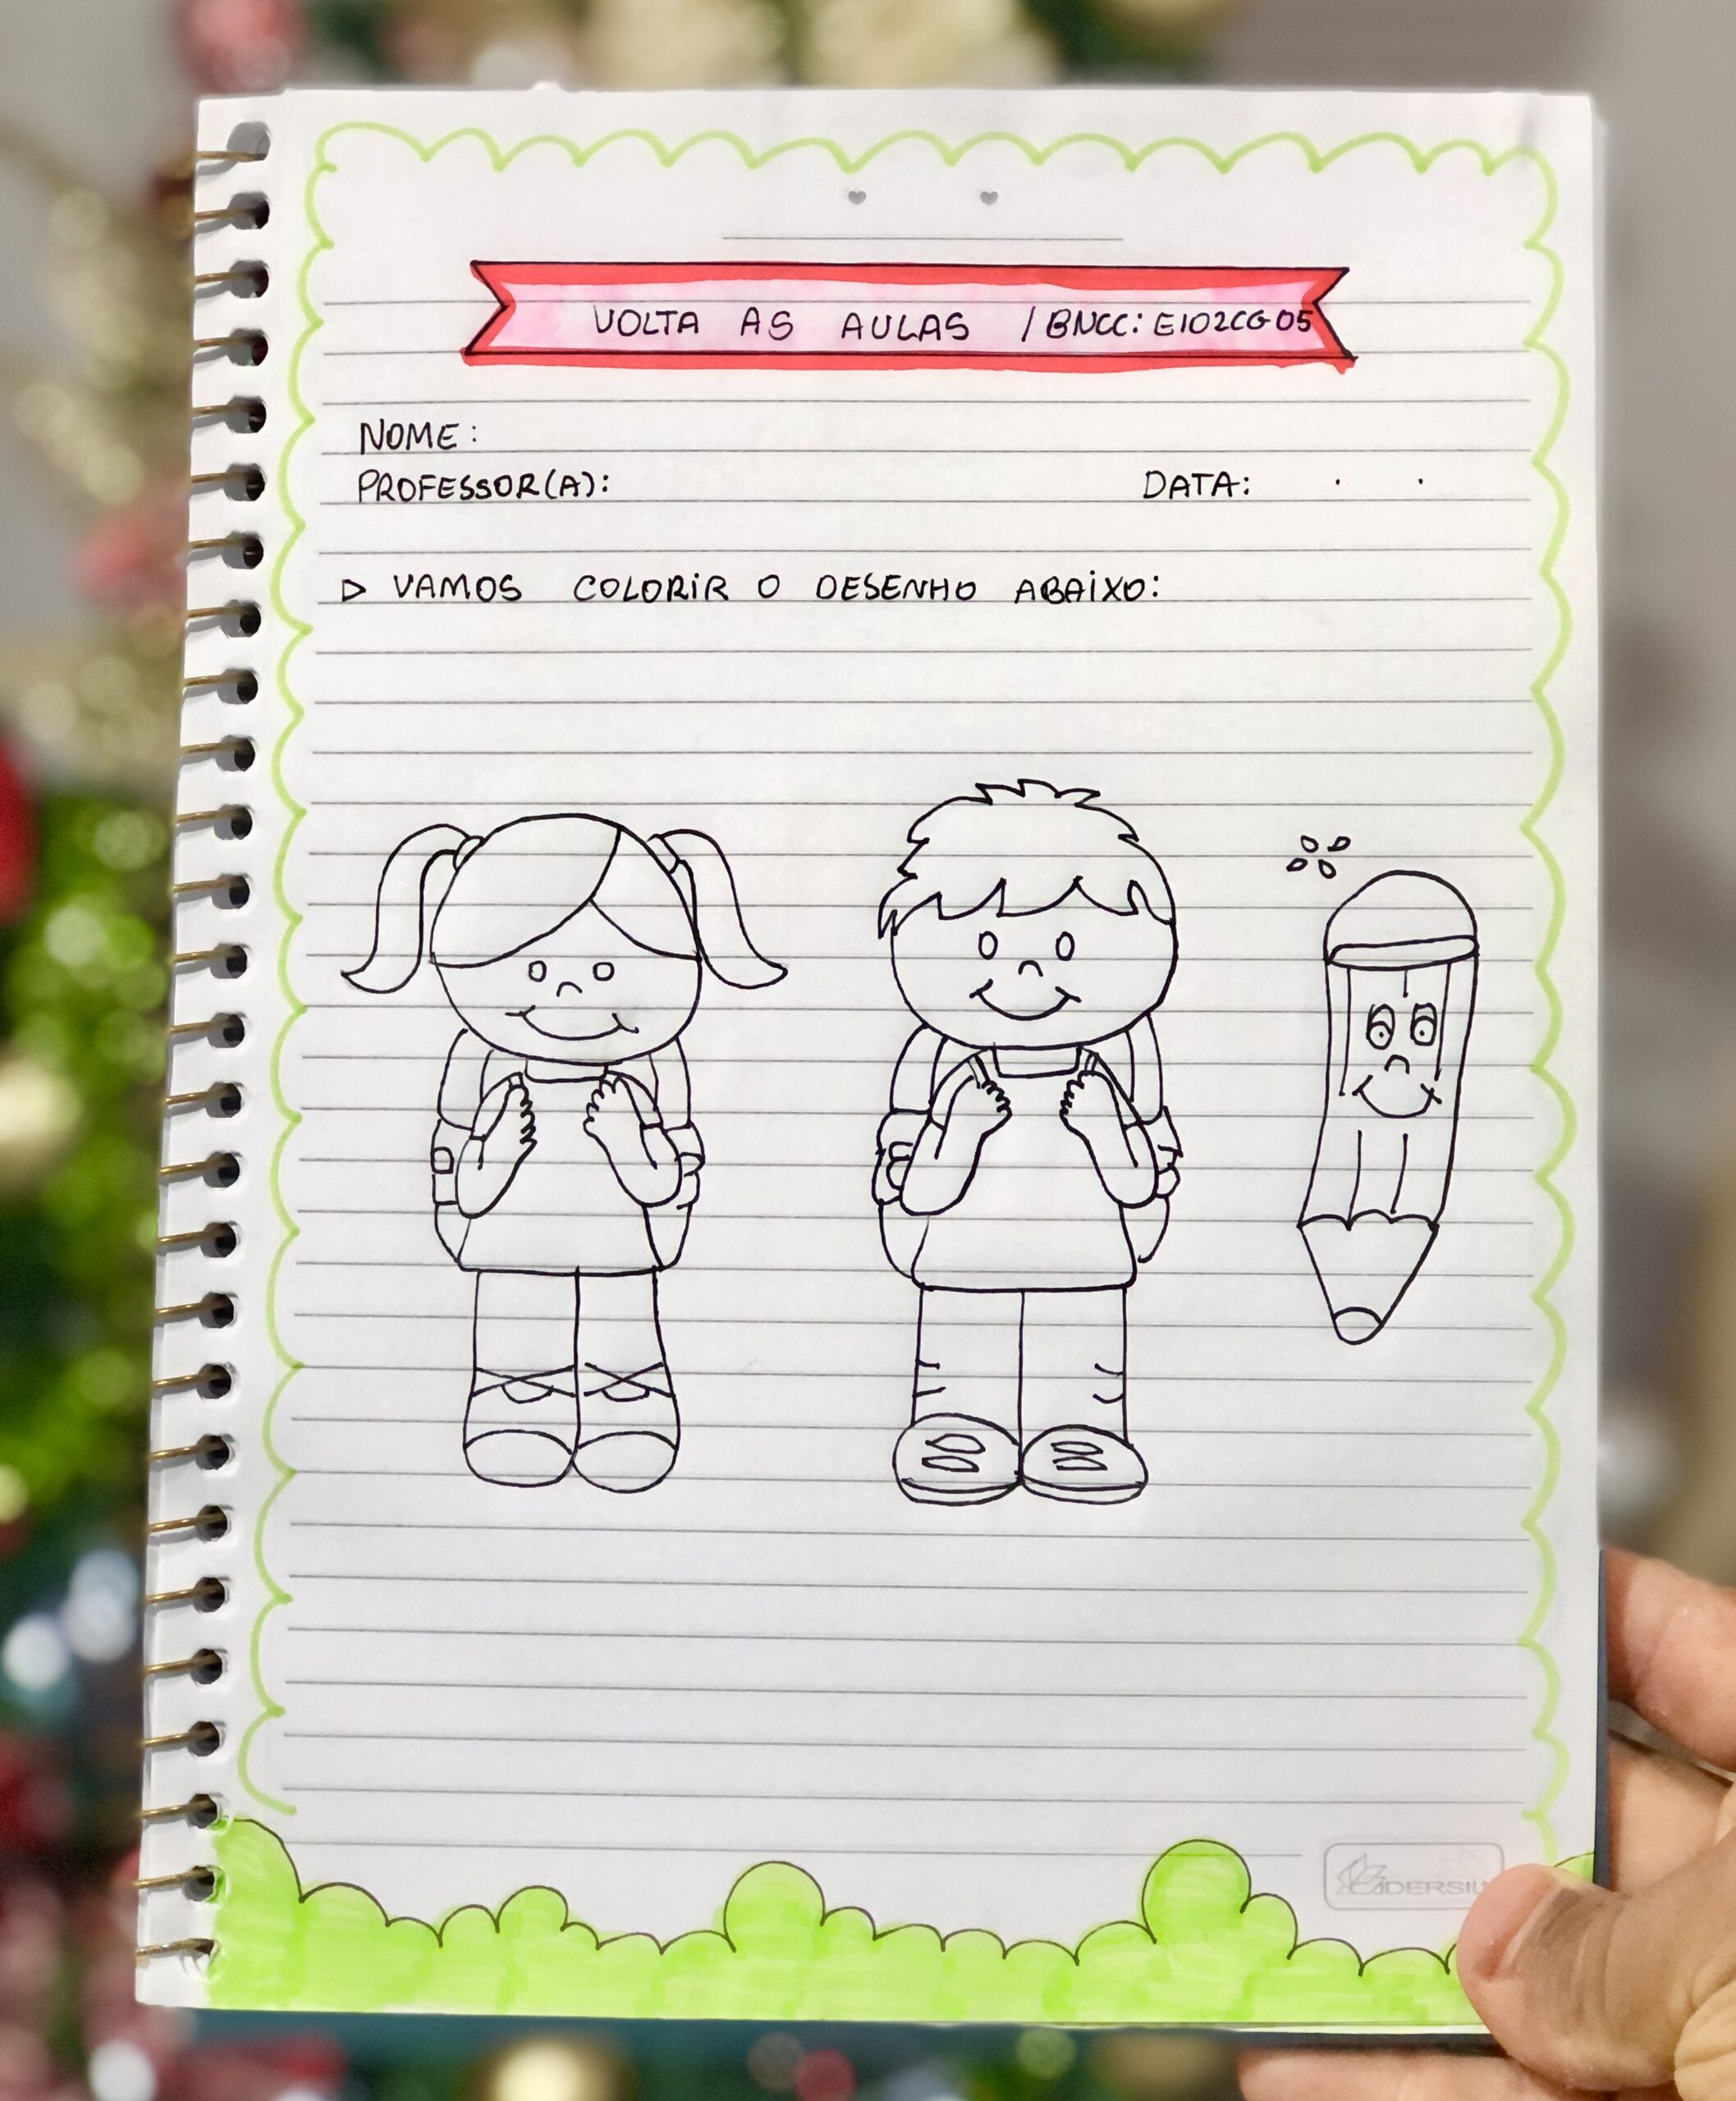 VOLTA AS AULAS / BNCC: EI02CG05
NOME:
PROFESSOR(A): DATA: . .
▷ VAMOS COLORIR O DESENHO ABAIXO: